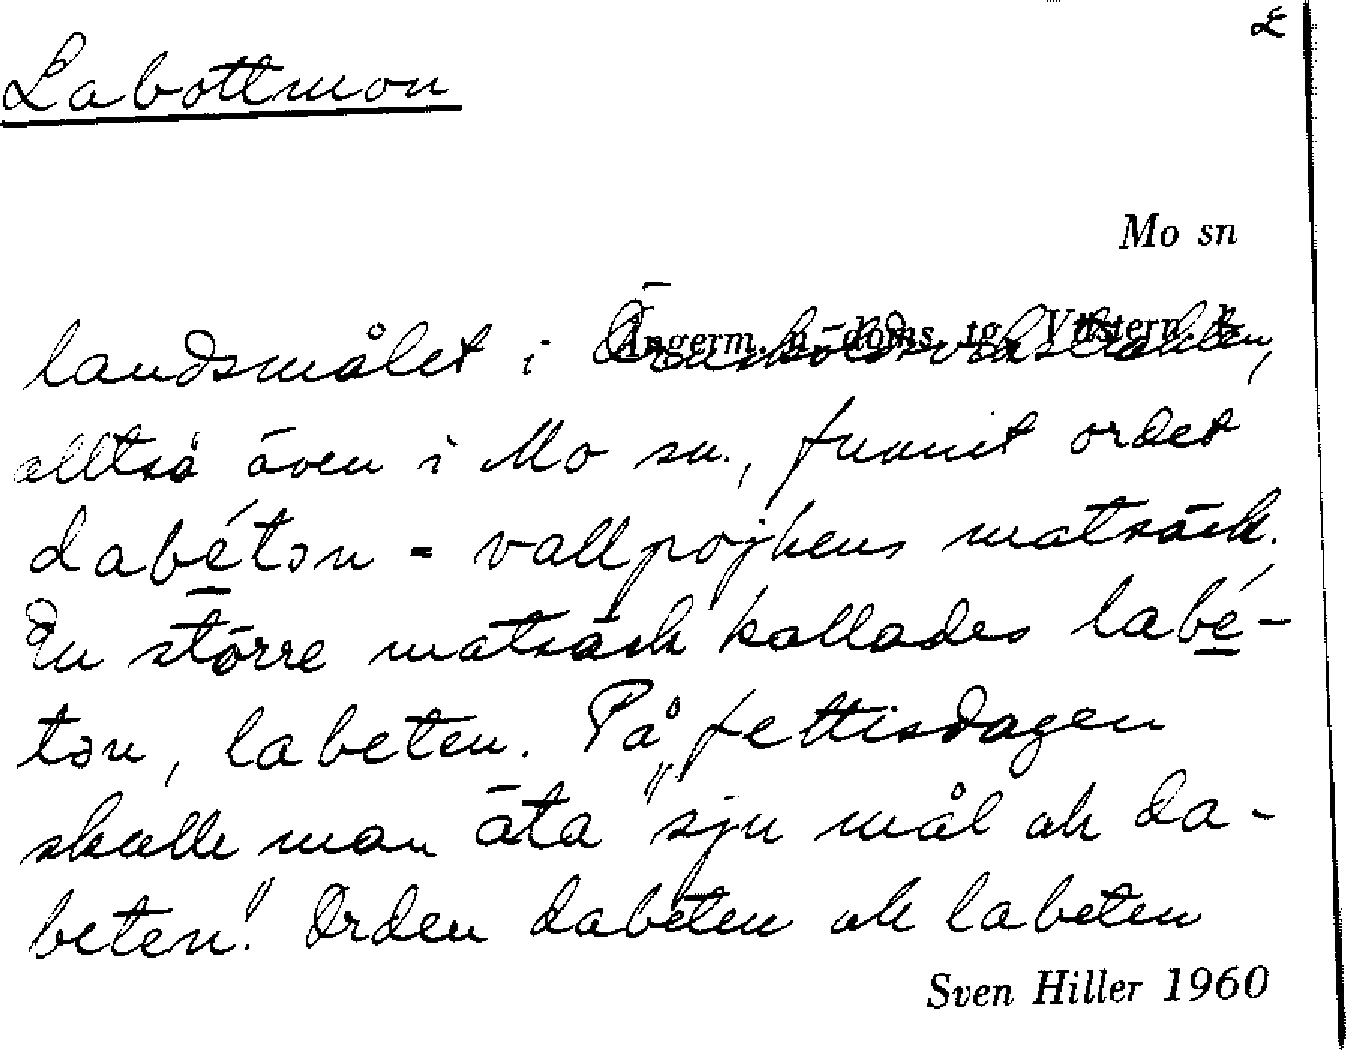 Ł
Labottmon
Mo sn
Ångerm. o. doms. tg. Västern. l.
landsmålet i Örnsköldsvikstrakten,
alltså även i Mo sn., funnit ordet
dabétən = vallpojkens matsäck.
En större matsäck kallades labé-
tən, labeten. På fettisdagen
skulle man äta "sju mål ok da-
beten". Orden dabeten ok labeten
Sven Hiller 1960